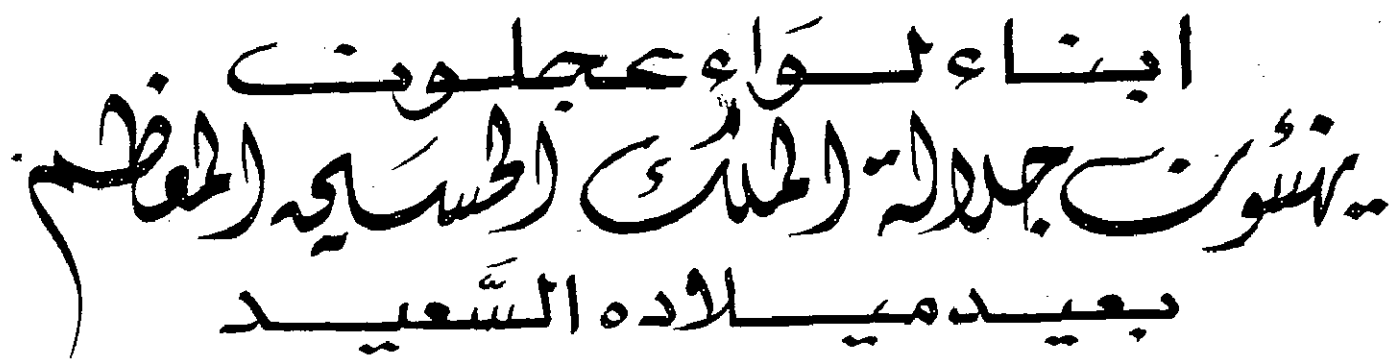 ابناء لواء عجلون
يهنئون جلالة الملك الحسين المعظم
بعيد ميلاده السَّعيد